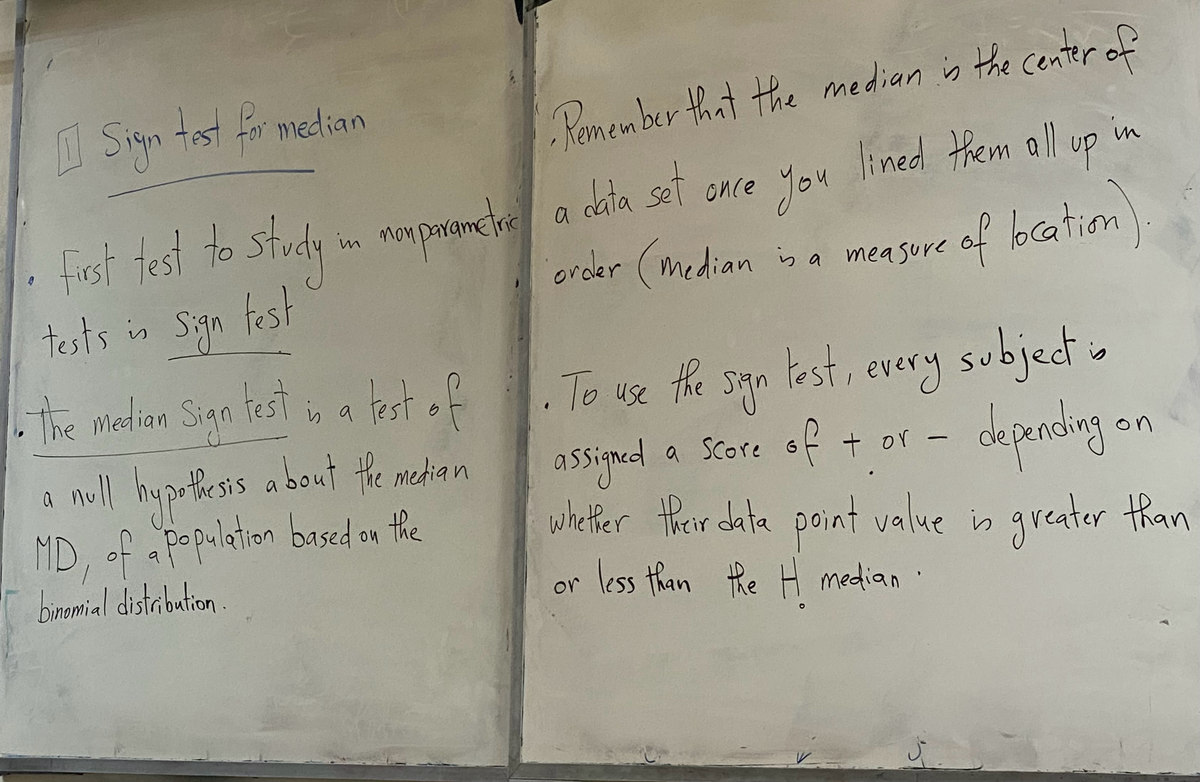 1 Sign test for median
. First test to study in nonparametric
tests is Sign test
. The median Sign test is a test of
a null hypothesis about the median
MD, of a population based on the
binomial distribution.
. Remember that the median is the center of
a data set once you lined them all up in
order (median is a measure of location).
. To use the sign test, every subject is
assigned a score of + or - depending on
whether their data point value is greater than
or less than the H₀ median.